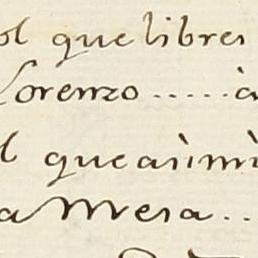 ol que libres
Lorenzo ..... à
l que asimi
a Mesa ...